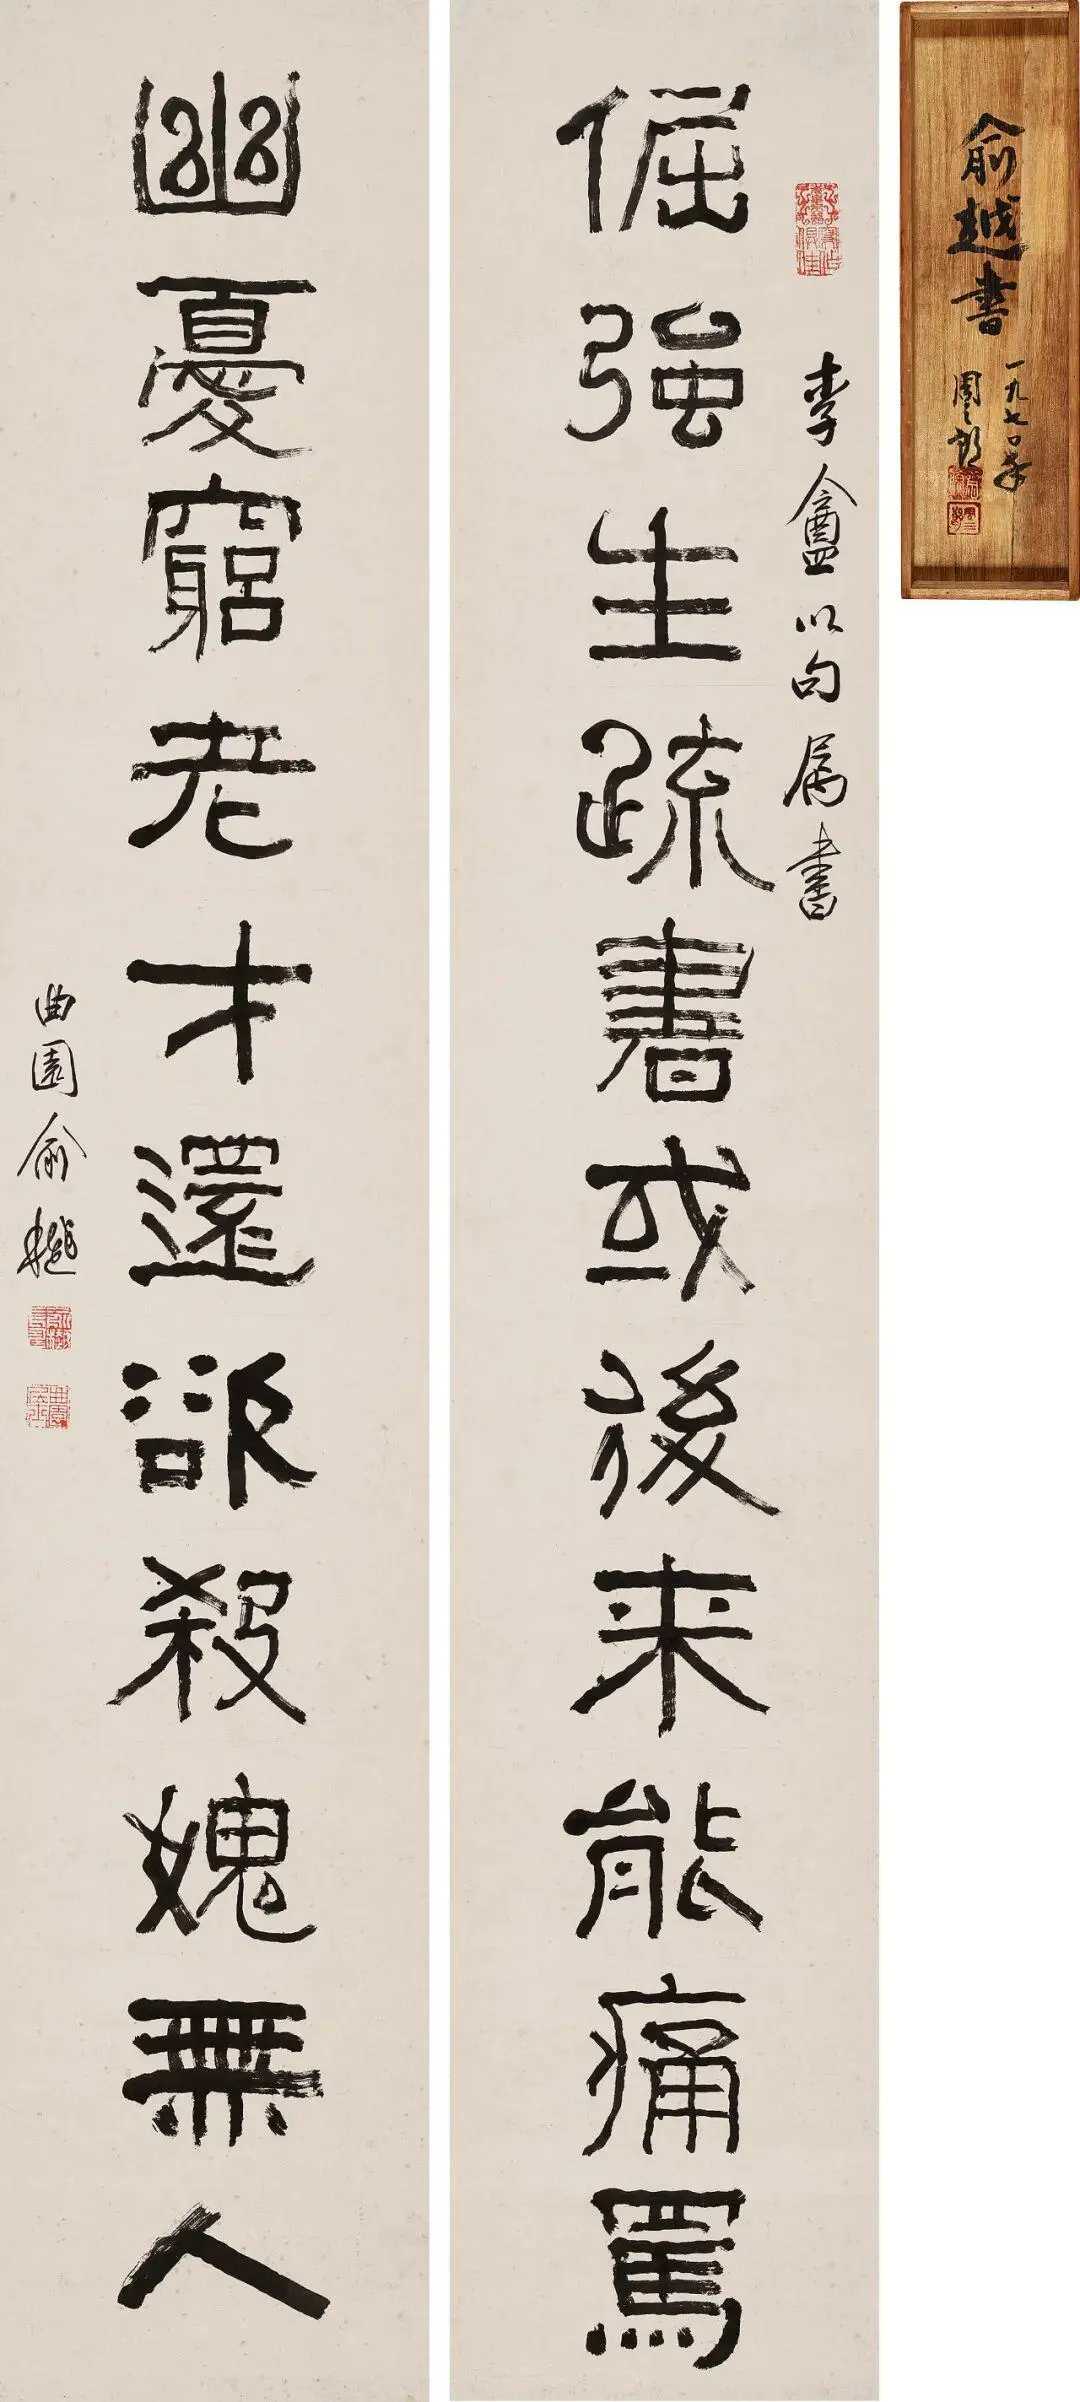 李盦以句屬書
倔強生疏書或後來能痛罵
幽憂窮老才還卻殺媿無人
曲園俞樾
俞越書
一九七〇年